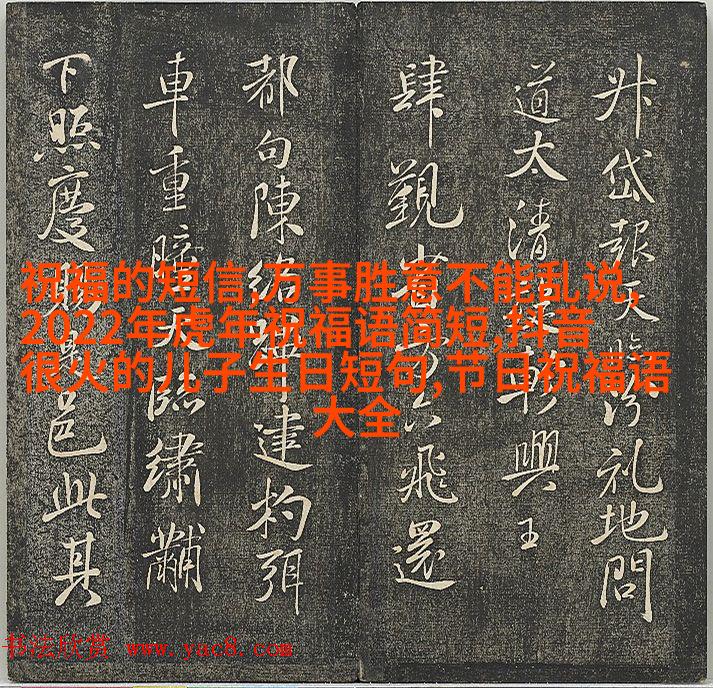 升岱報天臨汾礼地問
道太清軒興王
肆觀六飛還
都句陳建杓弭
車重天臨繡黼
下照慶賜邑此其
祝福的短信,万事胜意不能乱说,
2022年虎年祝福语简短,抖音
很火的儿子生日短句,节日祝福语
大全
书法欣赏 www.yac8.com